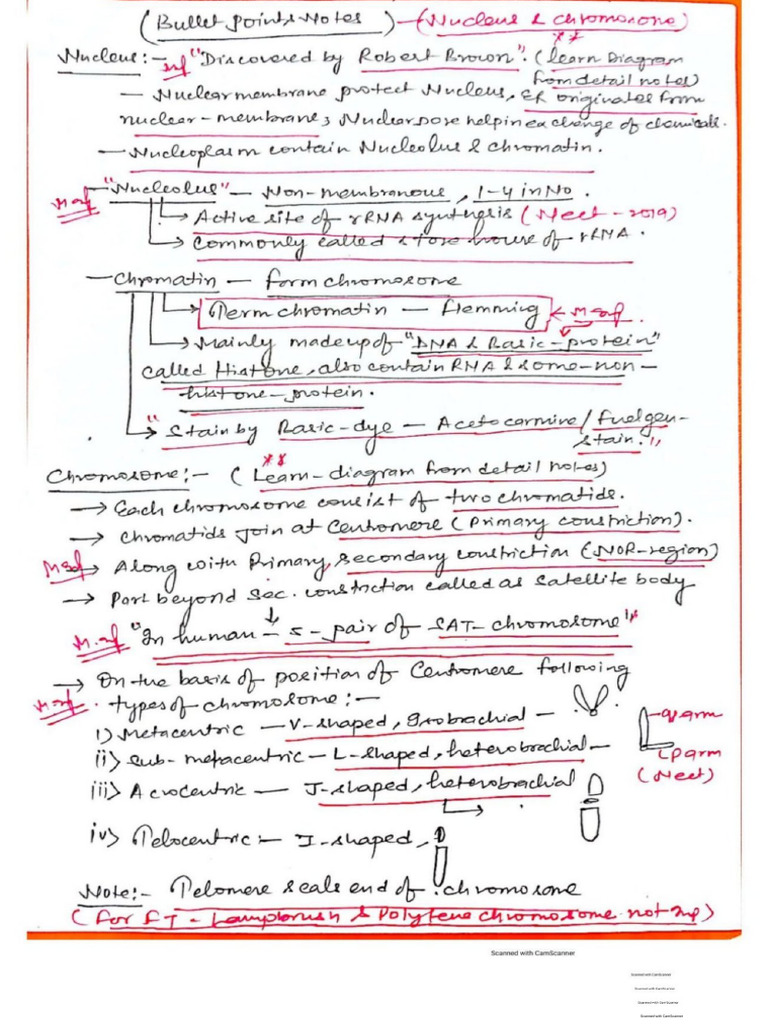 (Bullet points Notes) - (Nucleus & chromosome)
Nucleus:- Imf "Discovered by Robert Brown". (learn Diagram
from detail notes)
- Nuclear membrane protect Nucleus, ER originates from
nuclear-membrane; Nuclear pore help in exchange of chemicals.
- Nucleoplasm contain Nucleolus & chromatin.
M.imf - "Nucleolus" - Non-membranous, 1-4 in No.
→ Active site of rRNA synthesis (Neet-2019)
→ commonly called store house of rRNA.
- Chromatin - form chromosome
→ Term chromatin - Flemming ← M.imf
→ Mainly made up of "DNA & Basic-protein"
called Histone, also contain RNA & some-non-
histone-protein.
→ "Stain by Basic-dye - Acetocarmine/fuelgen-
stain."
Chromosome:- (Learn-diagram from detail notes)
→ Each chromosome consist of two chromatids.
→ Chromatids Join at Centromere (Primary constriction).
M.imf → Along with Primary, secondary constriction (NOR-region)
→ Part beyond Sec. constriction called as satellite body
M.imf "In human - 5-pair of SAT-chromosome"
→ On the basis of position of Centromere following
M.imf. types of chromosome:-
i) Metacentric - V-shaped, isobrachial -
ii) Sub-metacentric - L-shaped, heterobrachial -
q arm
p arm
(Neet)
iii) Acrocentric - J-shaped, heterobrachial
iv) Telocentric:- I-shaped,
Note:- Telomere seals end of chromosome
(For FT - Lampbrush & Polytene chromosome not imp)
Scanned with CamScanner
Scanned with CamScanner
Scanned with CamScanner
Scanned with CamScanner
Scanned with CamScanner